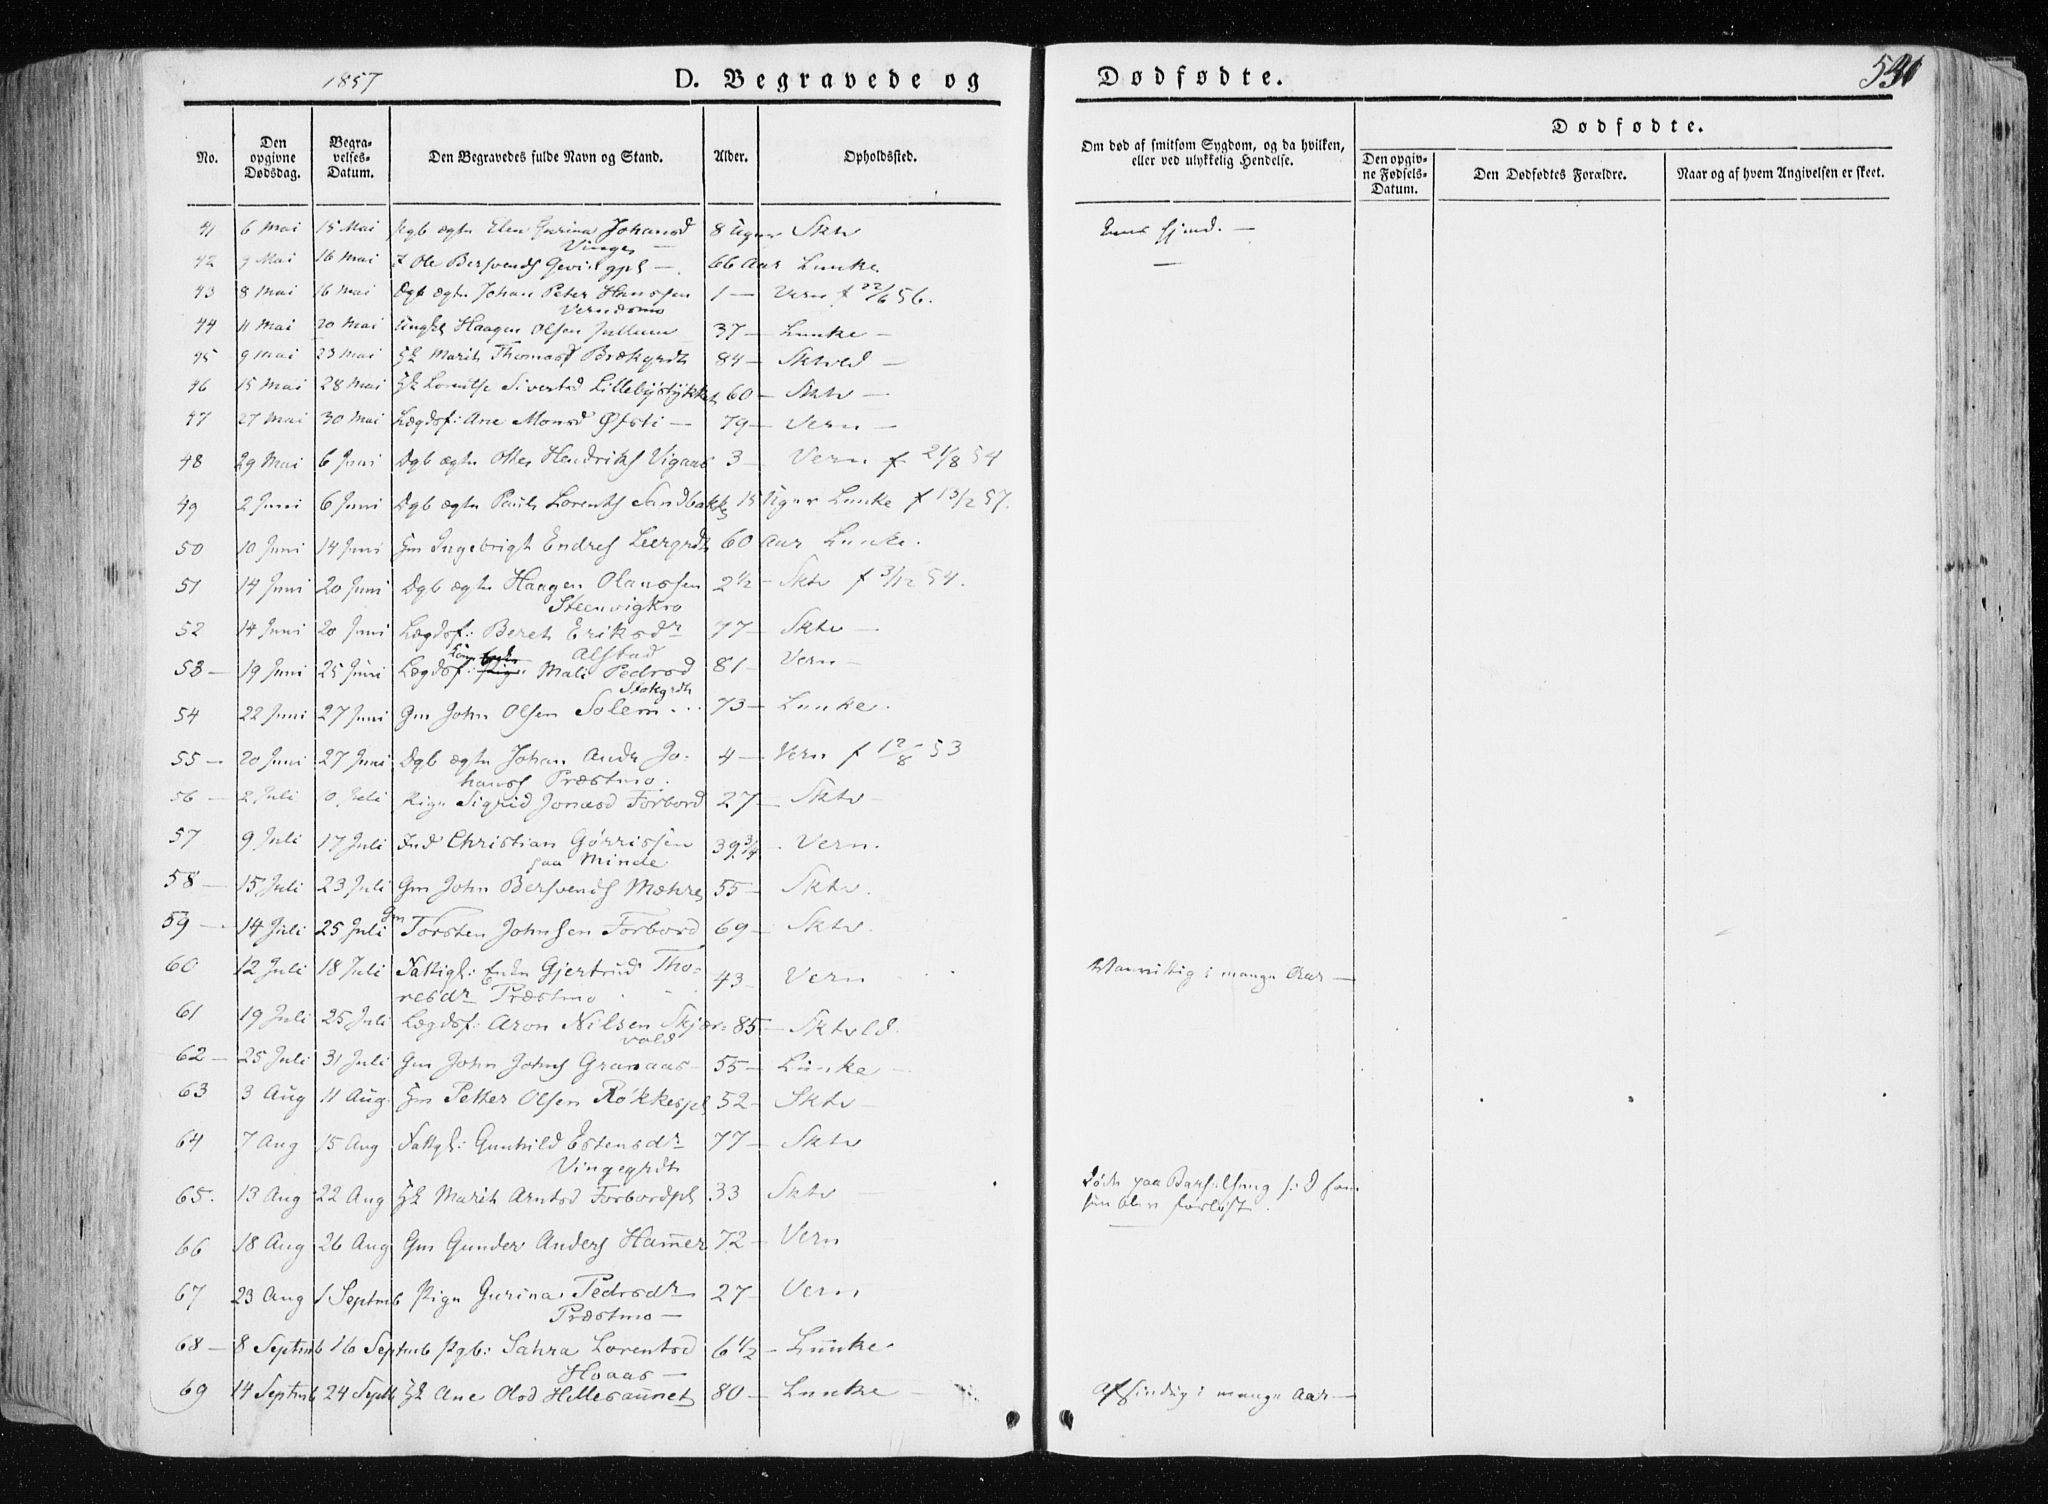 1857
D. Begravede og
Dødfødte.
541
No.
Den opgivne Dødsdag.
Begravelses-Datum.
Den Begravedes fulde Navn og Stand.
Alder.
Opholdssted.
Om død af smitsom Sygdom, og da hvilken, eller ved ulykkelig Hendelse.
Dødfødte.
Den opgivne Fødsels-Datum.
Den Dødfødtes Forældre.
Naar og af hvem Angivelsen er skeet.
41 6 Mai 15 Mai Pgb ægte Elen Gurina Johansd 8 Uger Sktv
Vinges
42 9 Mai 16 Mai Ole Bersvends 66 Aar Lunke.
43 8 Mai 16 Mai Dgb ægte Johan Peter Hanssen 1 — Vern f 22/6 56.
Vernesmo
44 11 Mai 20 Mai Ungkl Haagen Olsen Jullum 37 — Lunke —
45 9 Mai 23 Mai Gk Marit Thomasd Brækgrdt 84 — Sktvld —
46 15 Mai 28 Mai Gk Lorentse Sivertsd Lillebystykket 60 — Sktv —
47 27 Mai 30 Mai Lægdsf: Ane Monsd Øfsti — 79 — Vern —
48 29 Mai 6 Juni Dgb ægte Ottes Hendriks Vigaas 3 — Vern f 21/8 54
49 2 Juni 6 Juni Dgb ægte Paul Lorents Sandbakk 15 Uger Lunke f 13/2 57.
50 10 Juni 14 Juni Gm Ingebrigt Endres Leergrdt 60 Aar Lunke.
51 14 Juni 20 Juni Dgb ægte Haagen Olaussen 2 1/2 — Sktv f 3/12 54.
Steenvigkro
52 14 Juni 20 Juni Lægdsf: Beret Eriksdr 77 — Sktv —
Alstad
53 — 19 Juni 25 Juni Lægdsf: Mali Pedrsd 81 — Vern —
Stokgrdt
54 22 Juni 27 Juni Gm John Olsen Solem 73 — Lunke.
55 — 20 Juni 27 Juni Dgb ægte Johan Andr Jo- 4 — Vern f 12/8 53
hans Præstmo.
56 — 2 Juli 0 Juli Pige Sigrid Jonasd Forbord 27 — Sktv —
57 9 Juli 17 Juli Ind Christian Gørrissen 39 3/4 . Vern.
paa Minde
58 — 15 Juli 23 Juli Gm John Bersvends Mæhre 55 — Sktv.
59 — 14 Juli 25 Juli Gm Torsten Johnsen Forbord 69 — Sktv.
60 12 Juli 18 Juli Fattigl: Enke Gjertrud Tho- 43 — Vern Vanvittig i mange Aar —
resdr Præstmo
61 19 Juli 25 Juli Lægdsf: Aron Nilsen Skjær- 85 — Sktvld.
vold
62 — 25 Juli 31 Juli Gm John Johns Granaas 55 — Lunke —
63 3 Aug 11 Aug. Gm Petter Olsen Røkkespl 52 — Sktv —
64 7 Aug 15 Aug Fattgl: Gunhild Estensdr 77 — Sktv
Vingegrdt
65. 13 Aug 22 Aug Gk Marit Arntsd Forbordpl 33 Sktv — Døde paa Barselseng
66 18 Aug 26 Aug Gm Gunder Anders Hammer 72 — Vern
67 23 Aug 1 Septmb Pige Gurina Pedrsdr 27 — Vern
Præstmo —
68 — 8 Septmb 16 Septmb Pgb: Sahra Lorentsd 6 1/2 — Lunke
Hoaas —
69 14 Septmb 24 Septb Gk Ane Olsd Hellesaunet 80 — Lunke — Afsindig i mange Aar —